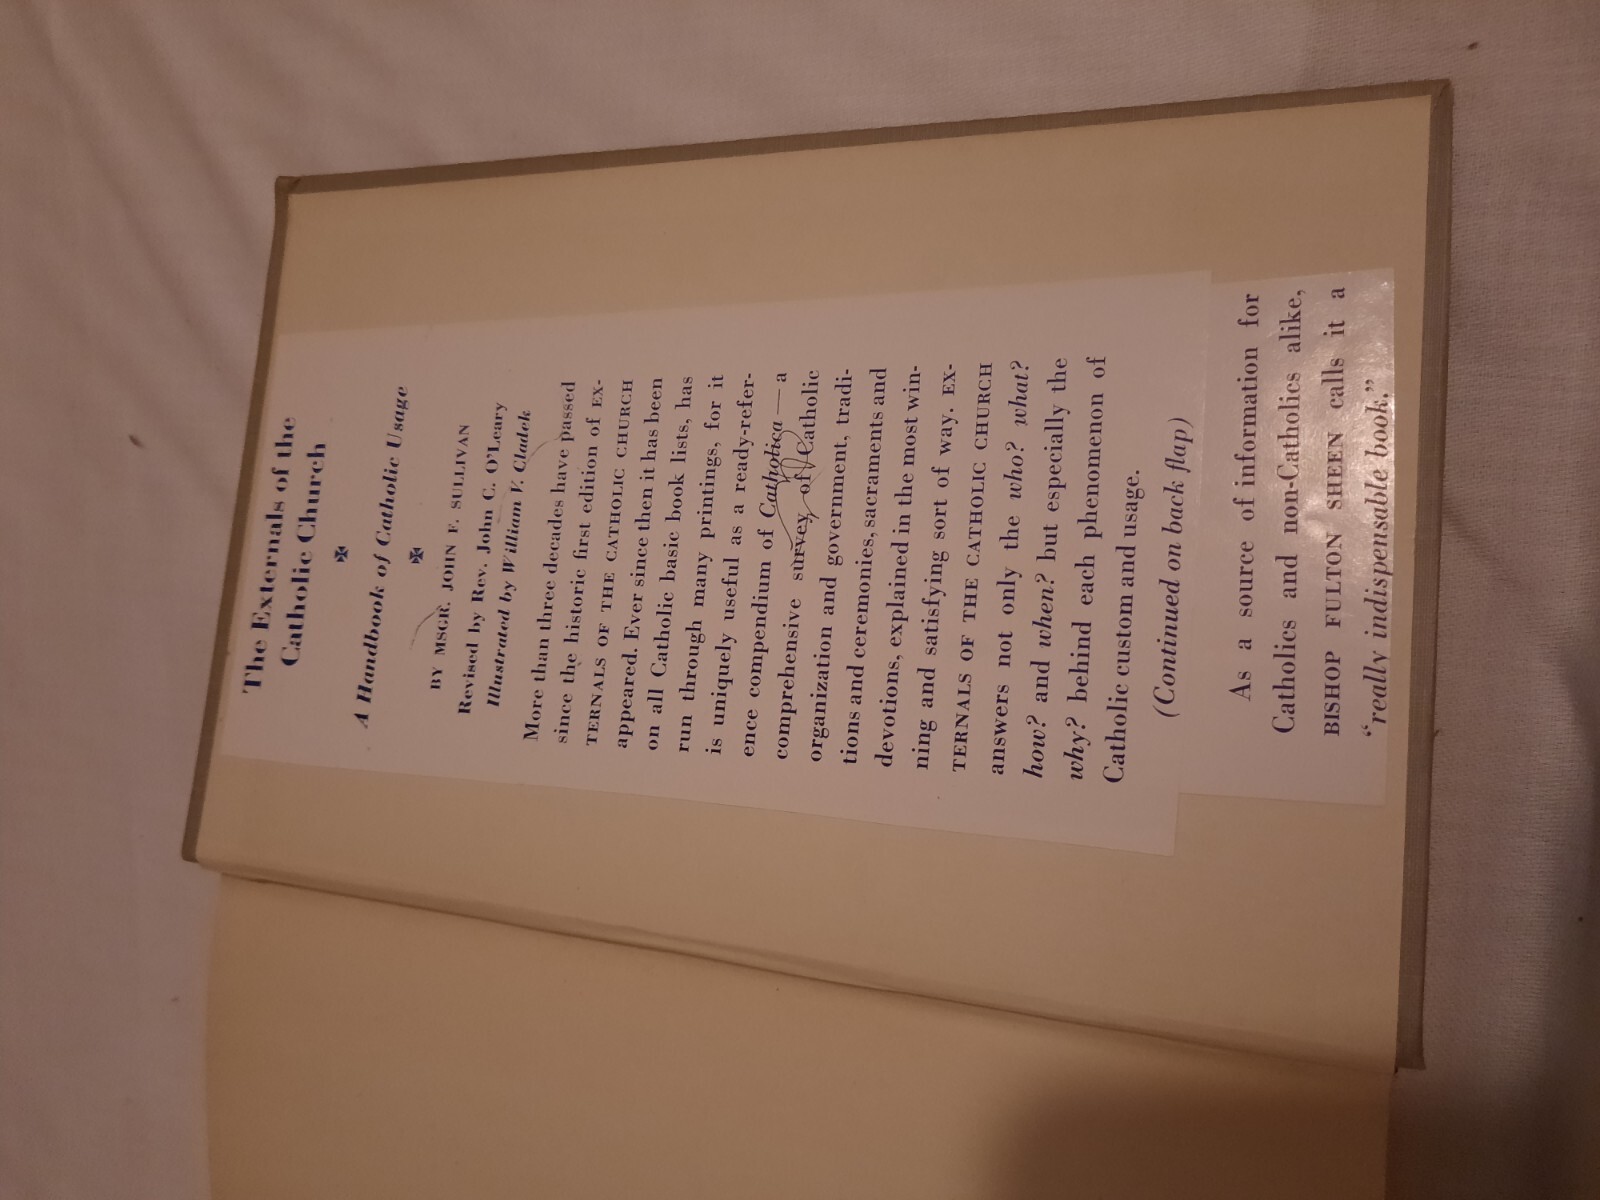 The Externals of the
Catholic Church
✠
A Handbook of Catholic Usage
✠
BY MSGR. JOHN F. SULLIVAN
Revised by Rev. John C. O'Leary
Illustrated by William V. Cladek
More than three decades have passed
since the historic first edition of EX-
TERNALS OF THE CATHOLIC CHURCH
appeared. Ever since then it has been
on all Catholic basic book lists, has
run through many printings, for it
is uniquely useful as a ready-refer-
ence compendium of Catholica — a
comprehensive survey of Catholic
organization and government, tradi-
tions and ceremonies, sacraments and
devotions, explained in the most win-
ning and satisfying sort of way. EX-
TERNALS OF THE CATHOLIC CHURCH
answers not only the who? what?
how? and when? but especially the
why? behind each phenomenon of
Catholic custom and usage.
(Continued on back flap)
As a source of information for
Catholics and non-Catholics alike,
BISHOP FULTON SHEEN calls it a
“really indispensable book.”